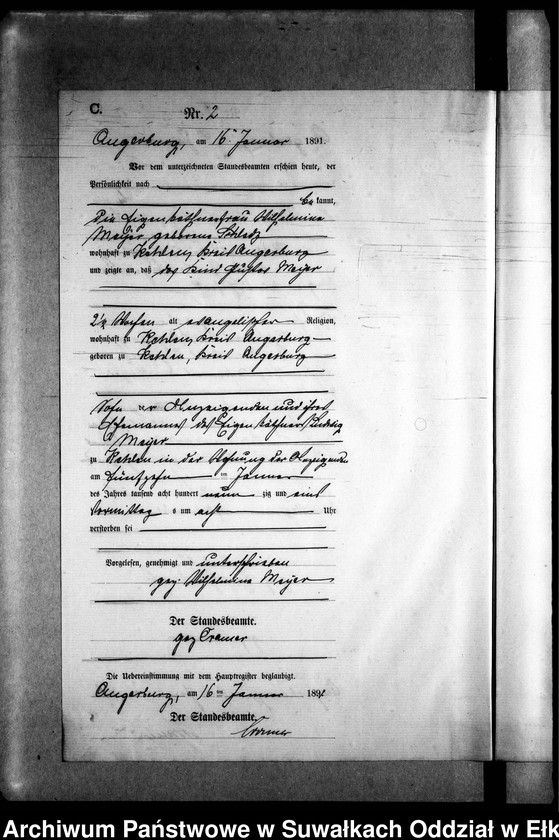 C.
Nr. 2
Angerburg, am 16 Januar 1891.
Vor dem unterzeichneten Standesbeamten erschien heute, der
Persönlichkeit nach
be kannt,
die Eigenkäthnerfrau Wilhelmine
Meijer geborene
wohnhaft zu Kehlen, Kreis Angerburg
und zeigte an, daß das Kind Gustav Meijer
2½ Wochen alt evangelischer Religion,
wohnhaft zu Kehlen, Kreis Angerburg
geboren zu Kehlen, Kreis Angerburg
Sohn der Anzeigenden und ihres
Ehemannes des Eigenkäthners Ludwig
Meijer
zu Kehlen in der Wohnung der Anzeigenden
am fünfzehn ten Januar
des Jahres tausend acht hundert neun zig und eins
Vormittag s um acht Uhr
verstorben sei
Vorgelesen, genehmigt und unterschrieben
gez. Wilhelmine Meijer
Der Standesbeamte.
gez Cramer
Die Uebereinstimmung mit dem Hauptregister beglaubigt.
Angerburg, am 16 ten Januar 1891
Der Standesbeamte.
Cramer
Archiwum Państwowe w Suwałkach Oddział w Ełk